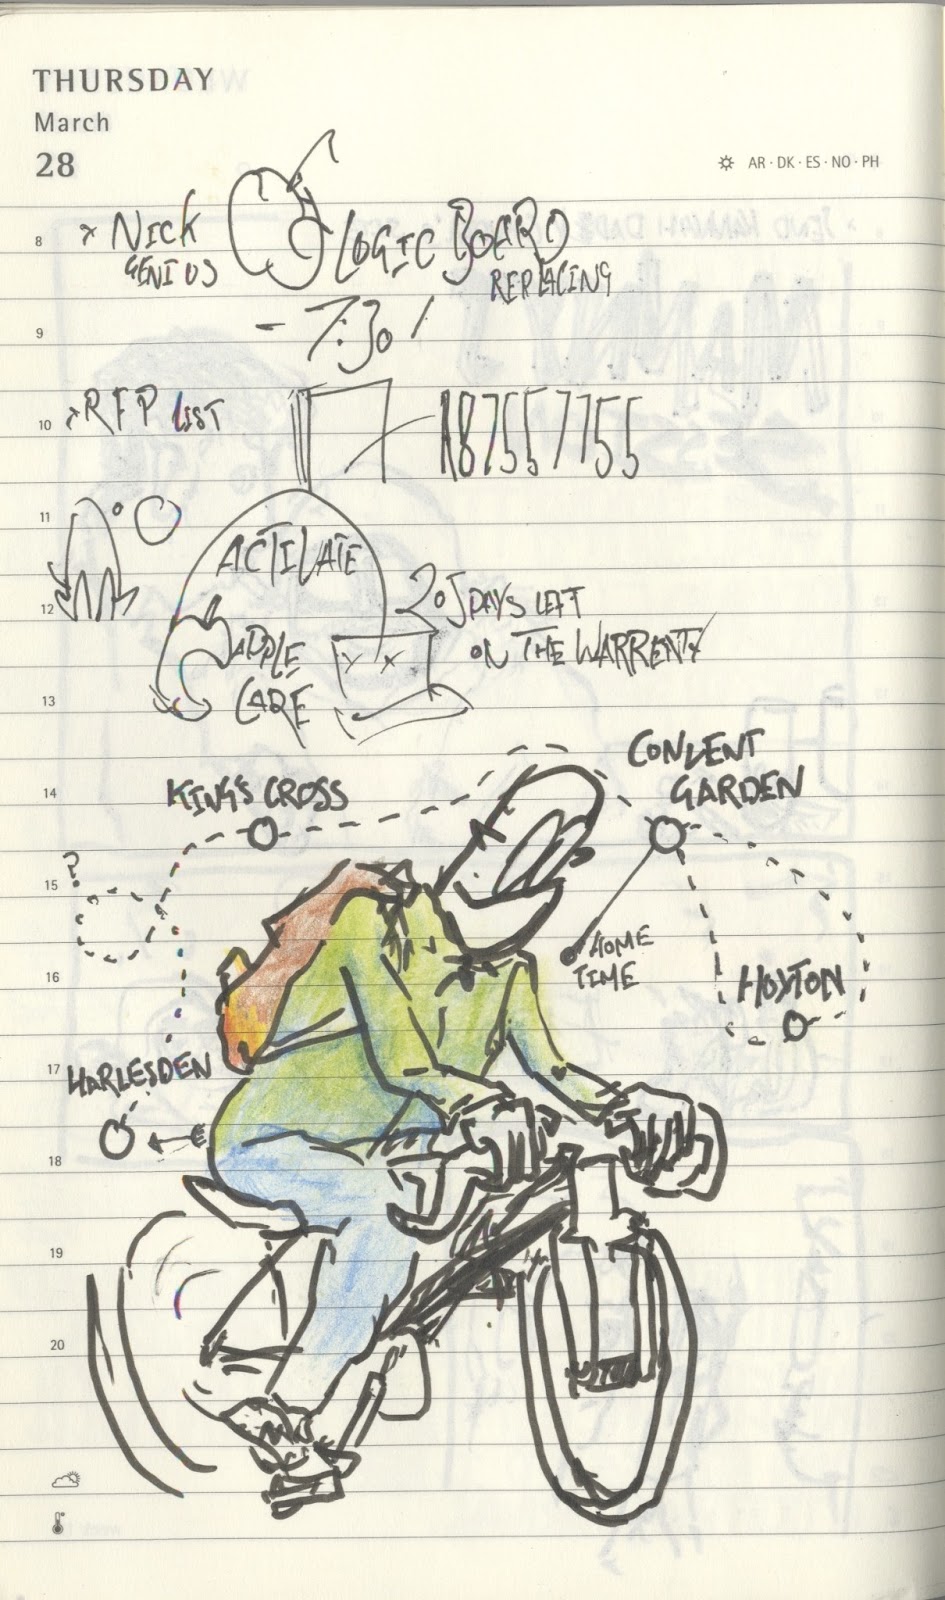 THURSDAY
March
28
AR · DK · ES · NO · PH
8
× NICK
GENIUS
LOGIC BOARD
REPLACING
- 7:30
9
10
× RFP LIST
A87557755
11
ACTIVATE
12
APPLE
CARE
20 DAYS LEFT
ON THE WARRENTY
13
14
KING'S CROSS
COVENT
GARDEN
?
15
HOME
TIME
16
HOXTON
17
HARLESDEN
18
19
20